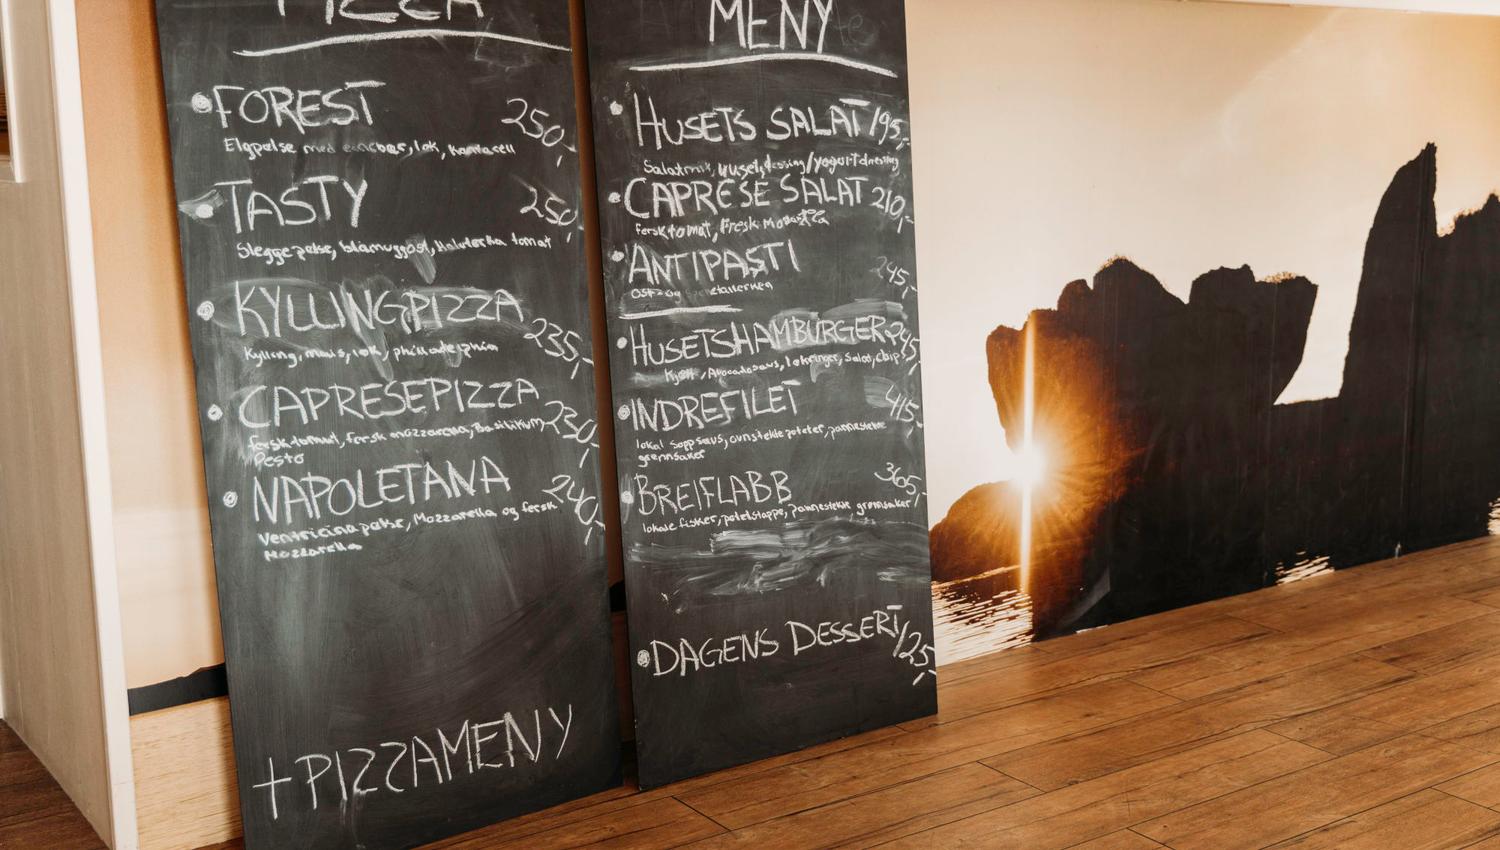 PIZZA
FOREST 250,-
Elgpølse med løk, kantarell
TASTY 250,-
Sleggepølse, blåmuggost, tomat
KYLLINGPIZZA 235,-
Kylling, mais, løk, philladelphia
CAPRESEPIZZA 230,-
fersk tomat, fersk mozzarella, Basilikum,
Pesto
NAPOLETANA 240,-
Ventricina pølse, Mozzarella og fersk
Mozzarella
+PIZZAMENY
MENY
HUSETS SALAT 195,-
Salatmix, dressing/yogurtdressing
CAPRESE SALAT 210,-
fersk tomat, fresk
ANTIPASTI 245,-
HUSETSHAMBURGER 245,-
Kjøtt, Avocadosaus, løkringer, Salat, chips
INDREFILET 415,-
lokal soppsaus, ovnstekte poteter, pannestekte
grønnsaker
BREIFLABB 365,-
lokale fisker, potetstappe, pannestekte grønnsaker
DAGENS DESSERT 125,-